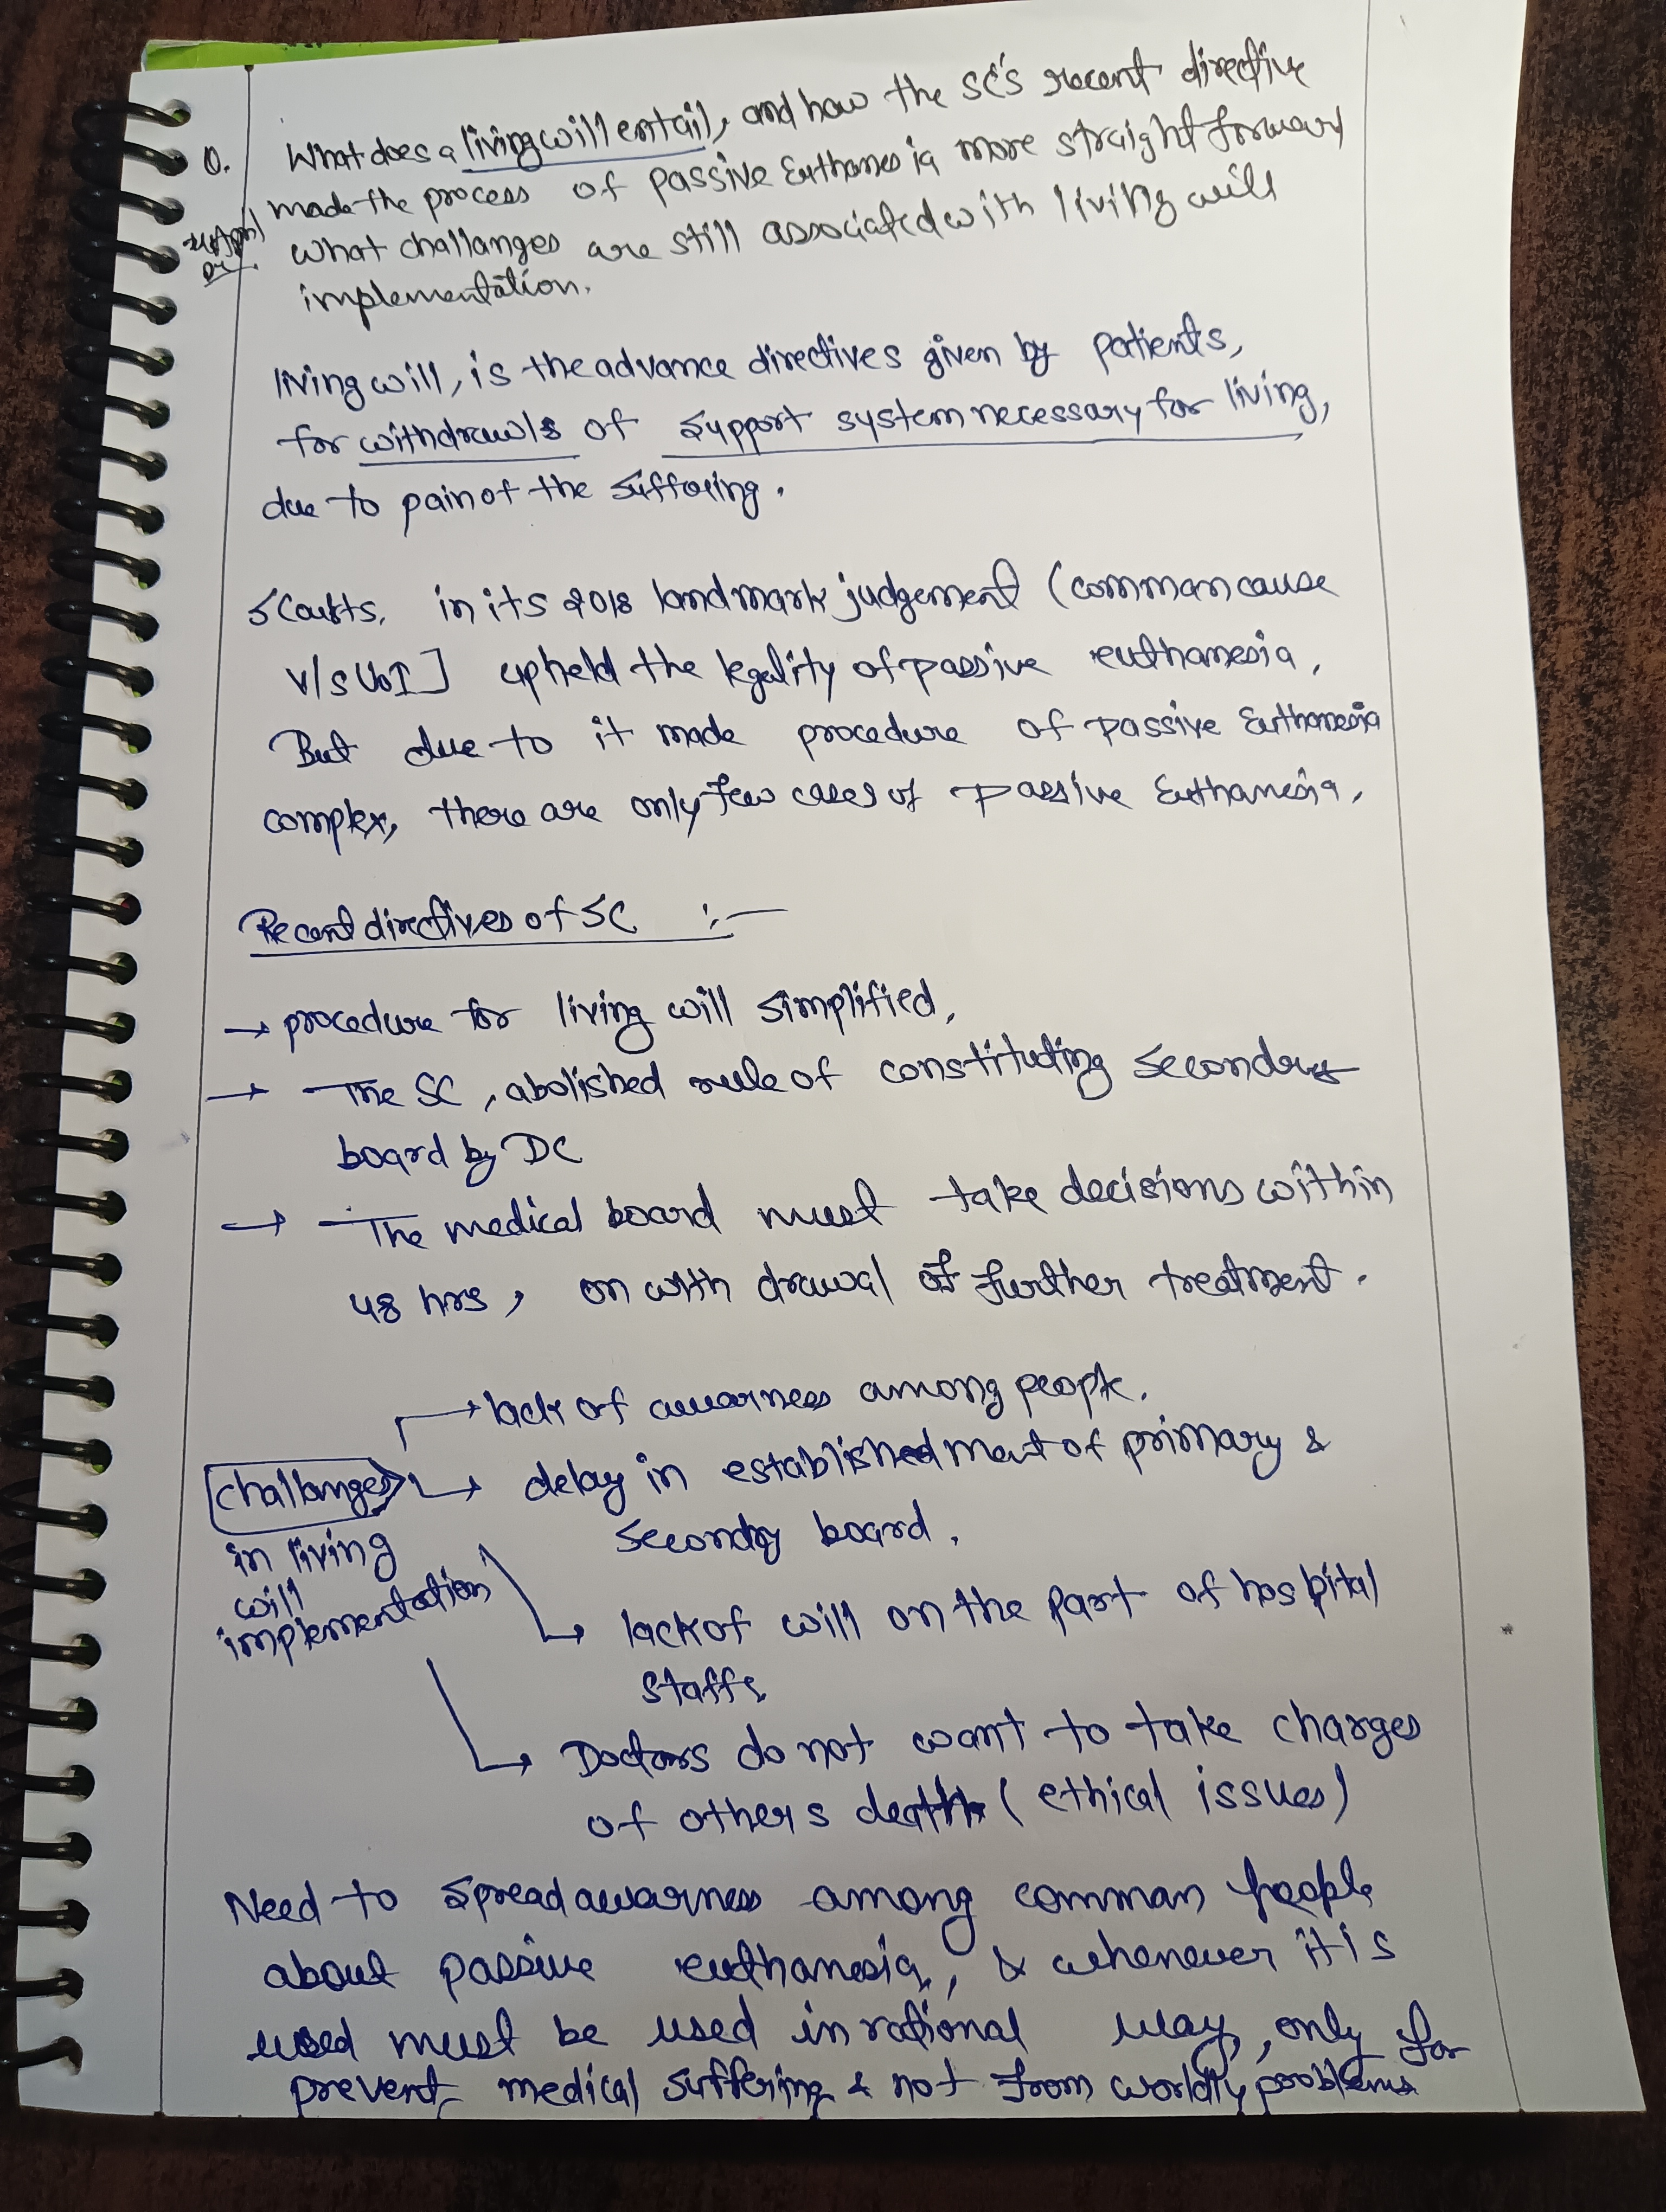 Q. What does a living will entail, and how the SC's recent directive
made the process of passive Euthanesia more straight forward
What challanges are still associated with living will
implementation.
living will, is the advance directives given by patients,
for withdrawls of support system necessary for living,
due to pain of the suffering.
SCourts, in its 2018 landmark judgement (comman cause
v/s UoI] upheld the legality of passive euthanesia,
But due to it made procedure of passive Euthanesia
complex, there are only few cases of passive Euthanesia,
Recent directives of SC :-
→ procedure for living will simplified,
→ The SC, abolished rule of constituting secondry
board by DC
→ The medical board must take decisions within
48 hrs, on with drawal of further treatment.
→ lack of awarness among people.
challanges → delay in establishedment of primary &
secondry board,
in living
will
implementation
→ lack of will on the part of hospital
staffs
→ Doctors do not want to take charges
of others death (ethical issues)
Need to spread awarness among comman people
about passive euthanesia, & whenever it is
used must be used in rational way, only for
prevent medical suffering & not from worldly problems